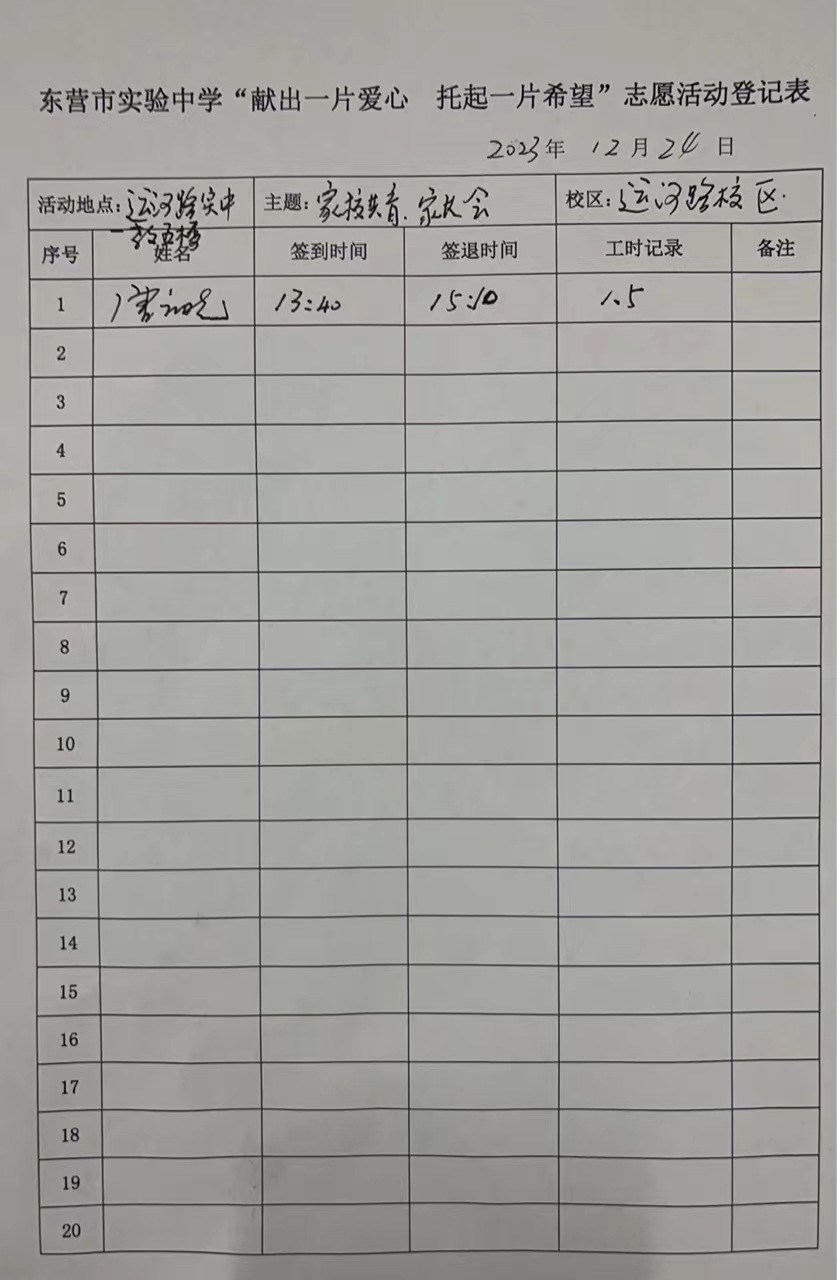 东营市实验中学“献出一片爱心 托起一片希望”志愿活动登记表
2023年 12月24日
活动地点:运河路实中 主题:家校共育.家长会 校区:运河路校区.
序号 姓名 签到时间 签退时间 工时记录 备注
1 13:40 15:10 1.5
2
3
4
5
6
7
8
9
10
11
12
13
14
15
16
17
18
19
20